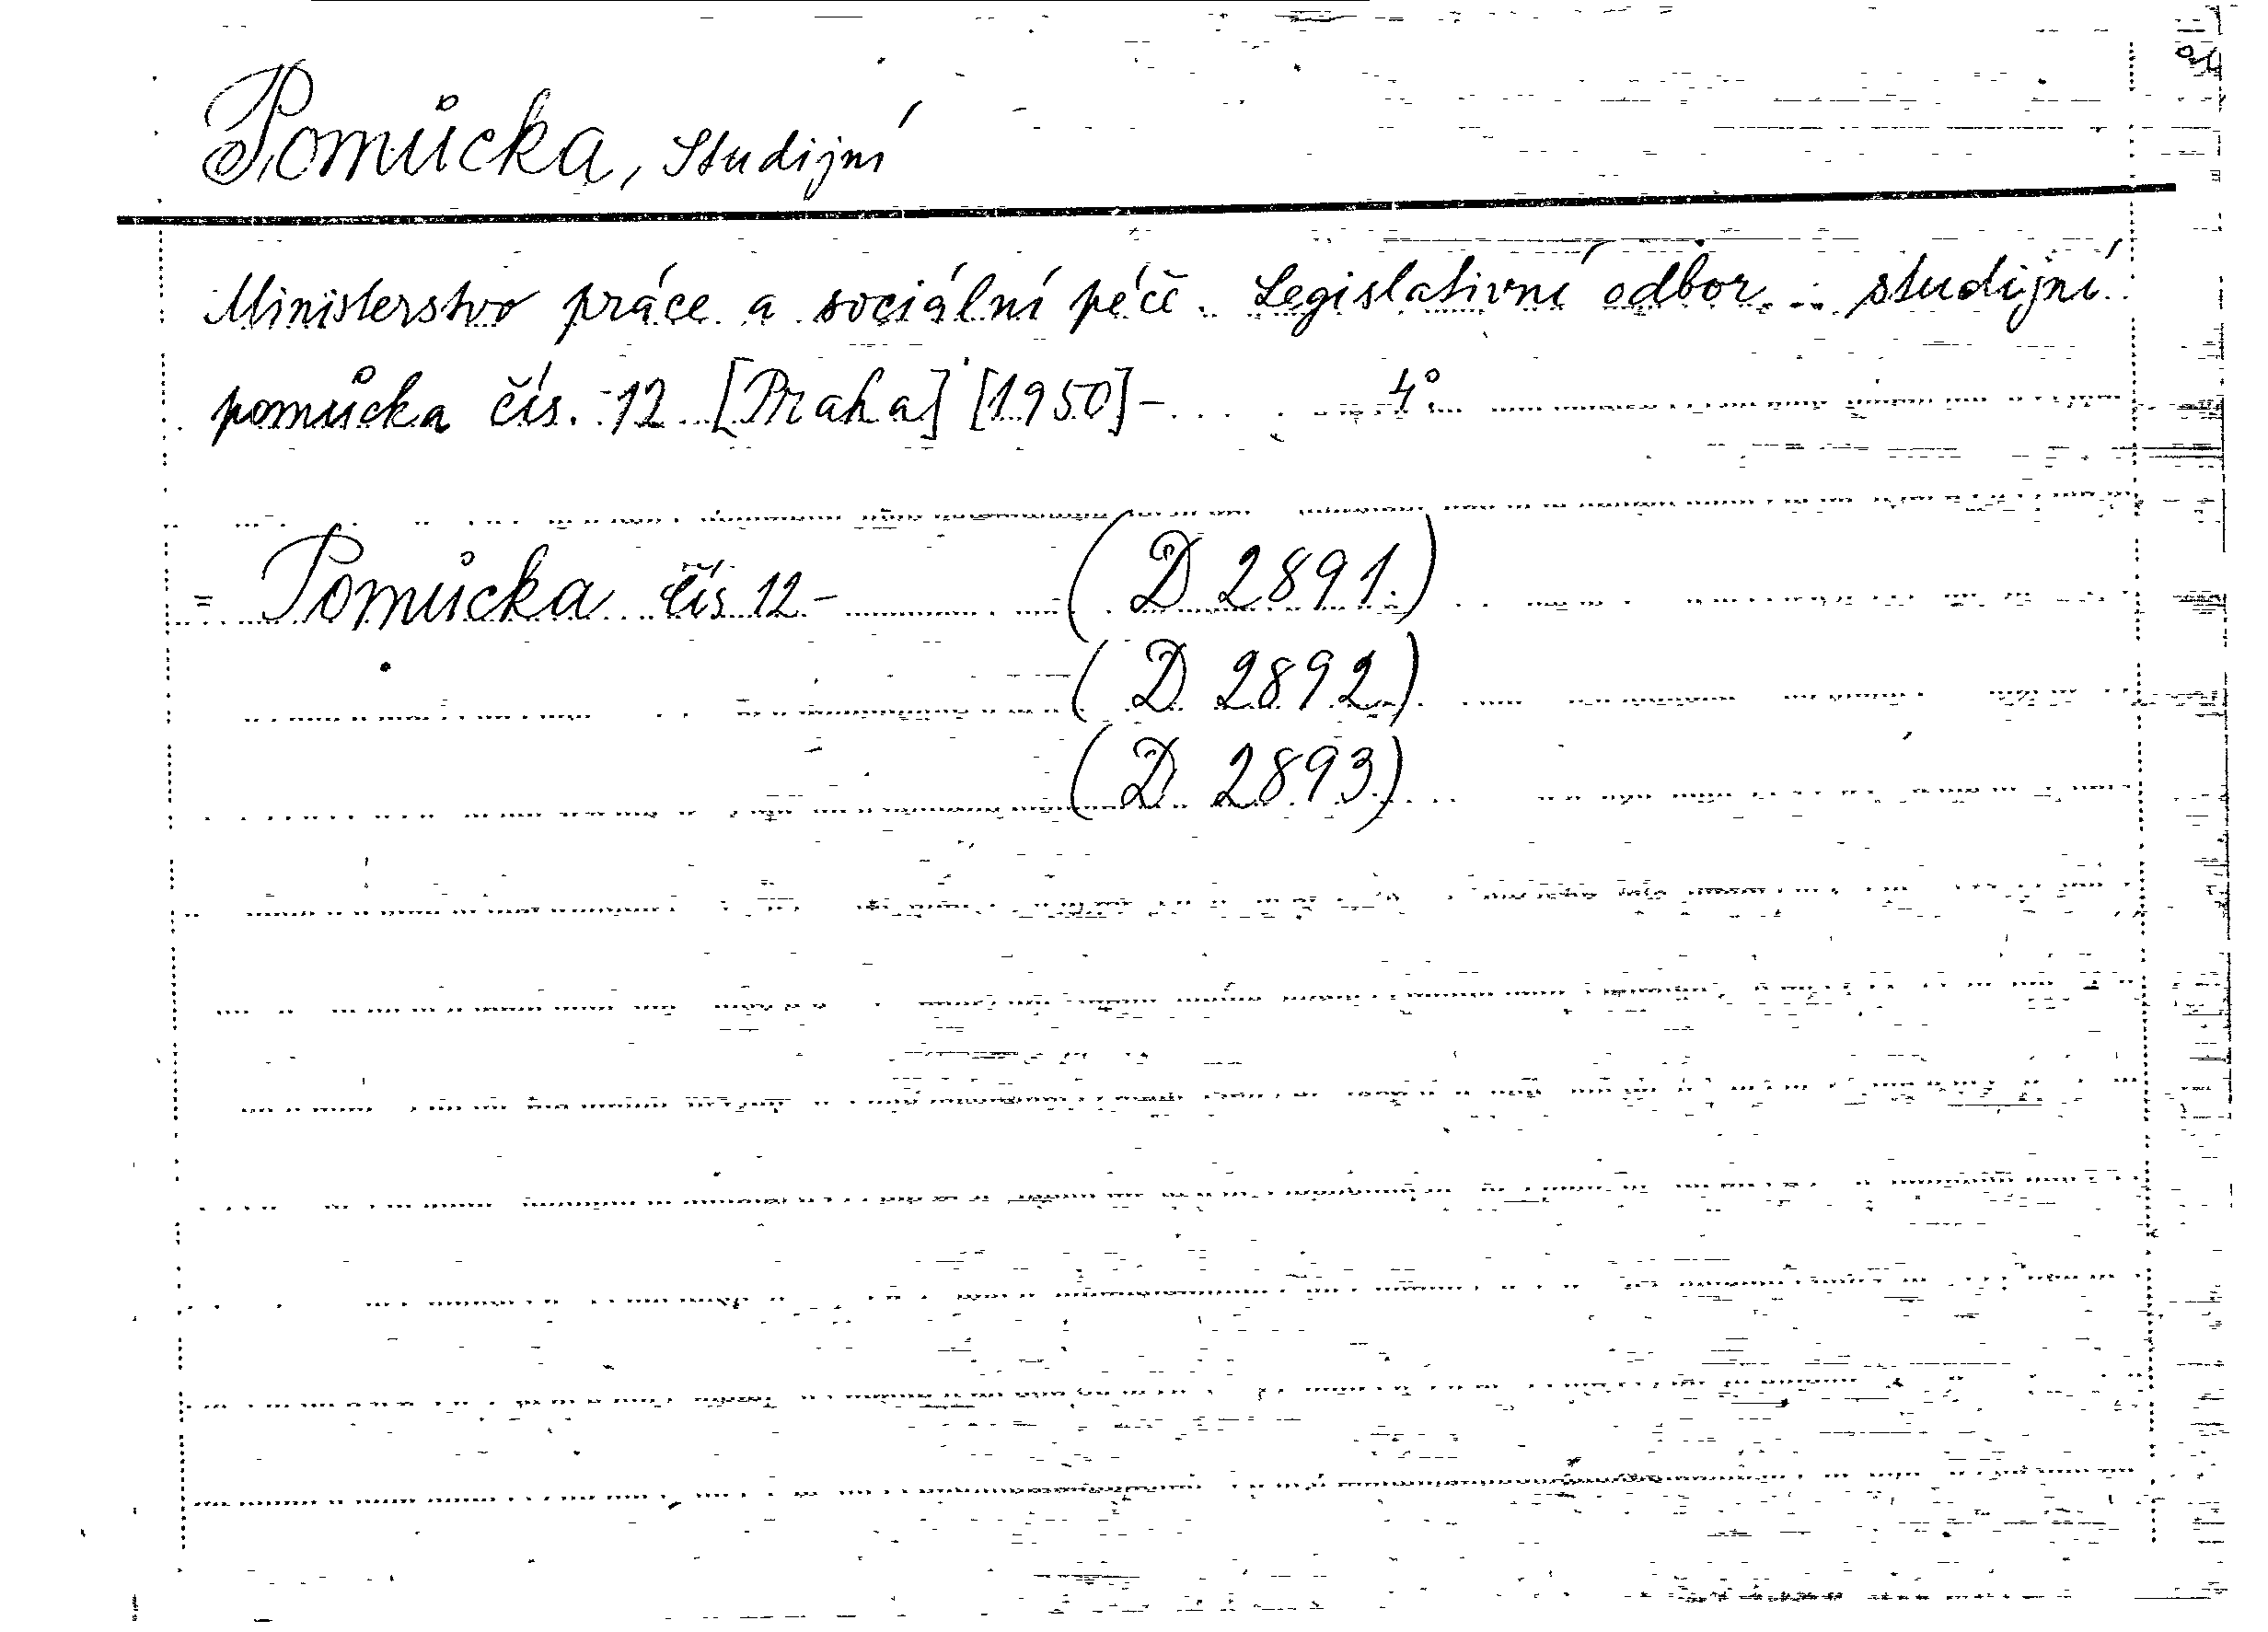 Pomůcka, studijní
Ministerstvo práce a sociální péče. Legislativní odbor. : studijní
pomůcka čís. 12 [Praha] [1950]- 4°
= Pomůcka čís 12 - (D 2891)
(D 2892)
(D 2893)